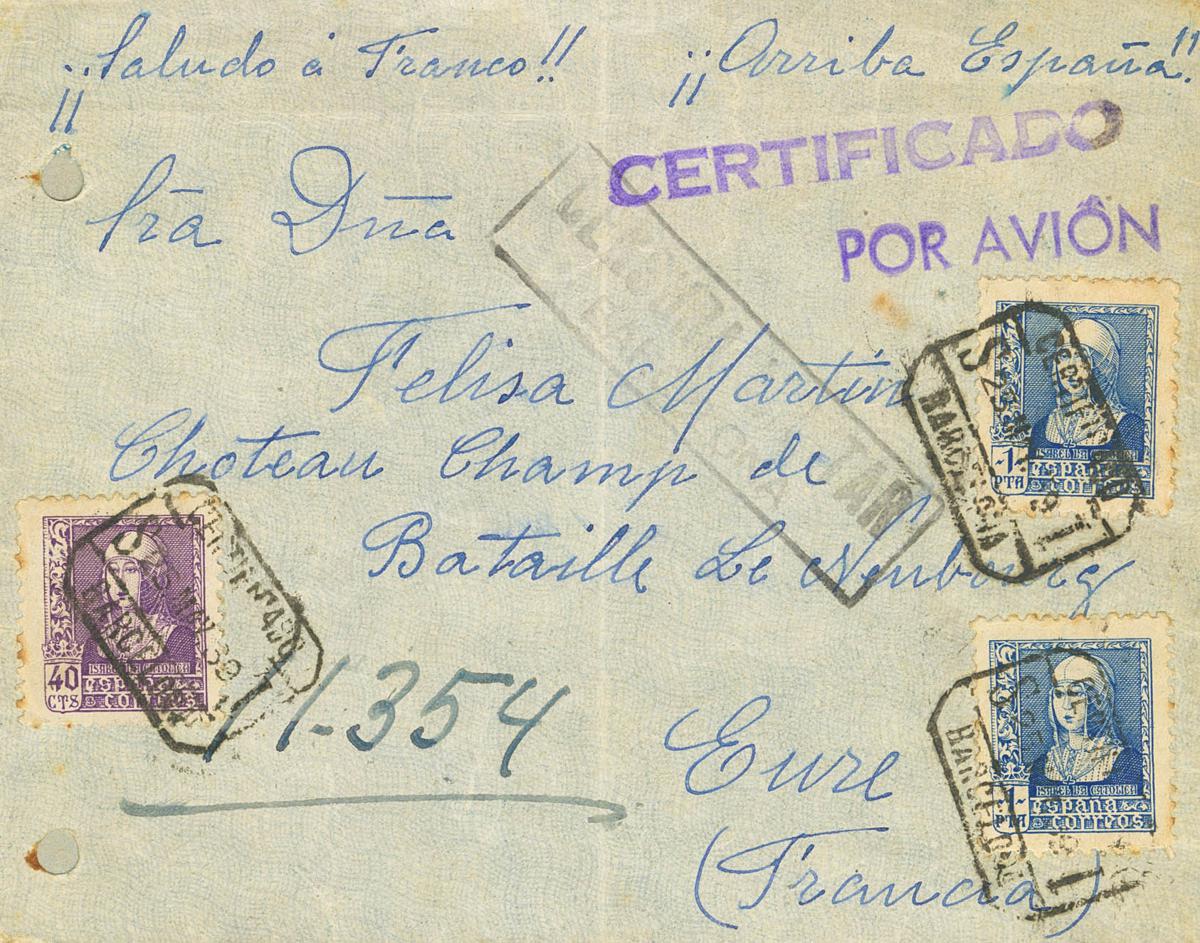 ¡¡Saludo á Franco!! ¡¡Arriba España!!
CERTIFICADO
POR AVIÓN
Sra Dña
Felisa Martín
Choteau Champ de
Bataille Le Neubourg
Eure
(Francia)
1-354
CENSURA MILITAR
BARCELONA
-1-
PTA
ISABEL LA CATOLICA
España
correos
CERTIFICADO
S 25 MAY 39
BARCELONA
40
CTS
ISABEL LA CATOLICA
España
correos
BARCELONA
-1-
PTA
ISABEL LA CATOLICA
España
correos